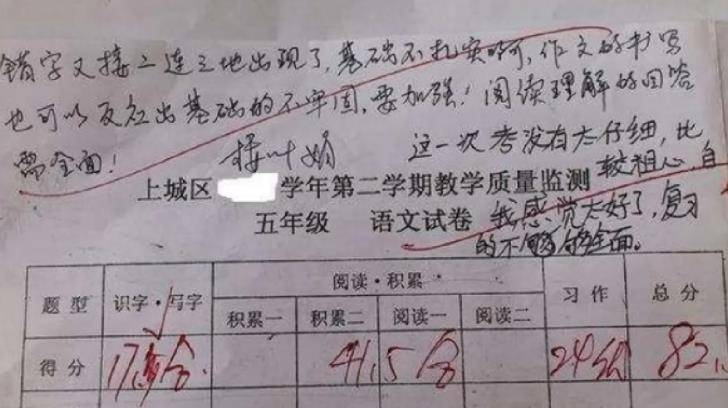 错字又接二连三地出现了,基础不扎实啊,作文的书写
也可以反应出基础的不牢固,要加强!阅读理解的回答
需全面!
这一次考没有太仔细,比
较粗心,自
我感觉太好了,复习
的不够全面。
上城区 学年第二学期教学质量监测
五年级 语文试卷
题型 识字·写字 阅读·积累 习作 总分
积累一 积累二 阅读一 阅读二
得分 41.5分 24分 82.